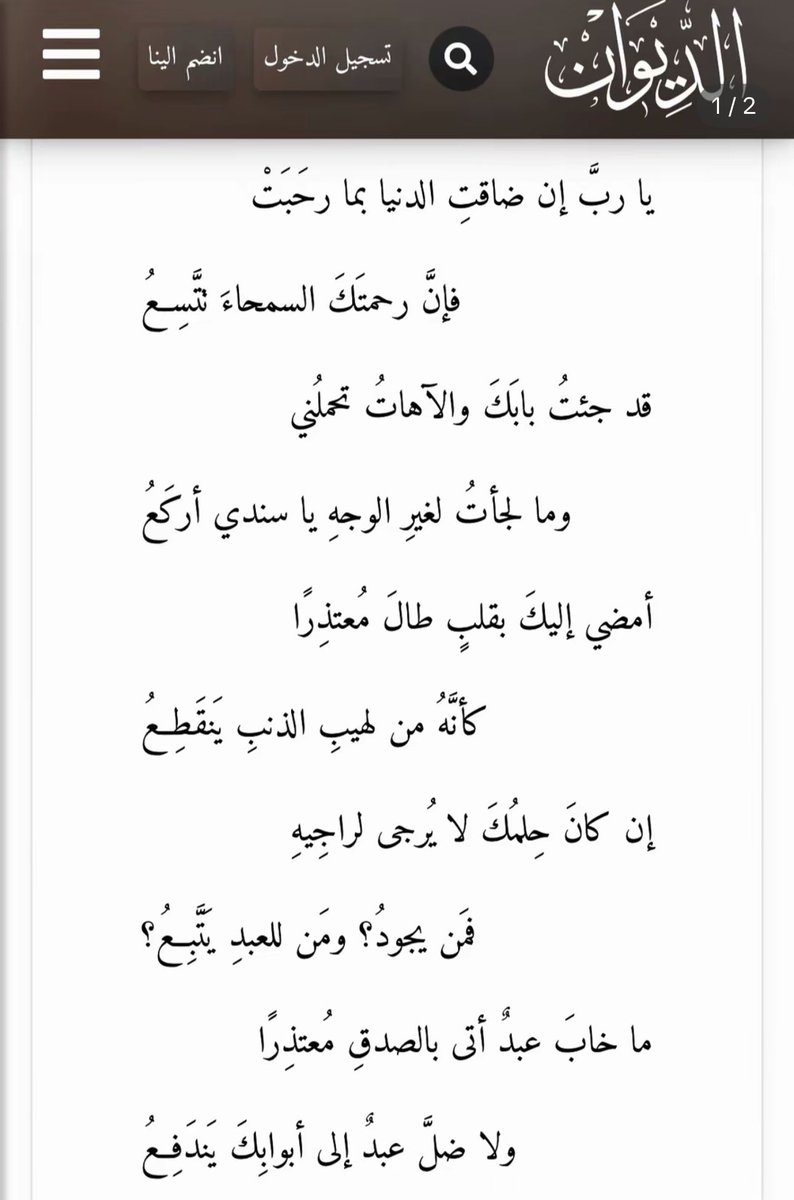 الدِّيوَان
تسجيل الدخول
انضم الينا
1 / 2
يا ربَّ إن ضاقتِ الدنيا بما رحَبَتْ
فإنَّ رحمتَكَ السمحاءَ تتَّسِعُ
قد جئتُ بابَكَ والآهاتُ تحملُني
وما لجأتُ لغيرِ الوجهِ يا سندي أركَعُ
أمضي إليكَ بقلبٍ طالَ مُعتذِرًا
كأنَّهُ من لهيبِ الذنبِ يَنقَطِعُ
إن كانَ حِلمُكَ لا يُرجى لراجِيهِ
فمَن يجودُ؟ ومَن للعبدِ يَتَّبِعُ؟
ما خابَ عبدٌ أتى بالصدقِ مُعتذِرًا
ولا ضلَّ عبدٌ إلى أبوابِكَ يَندَفِعُ